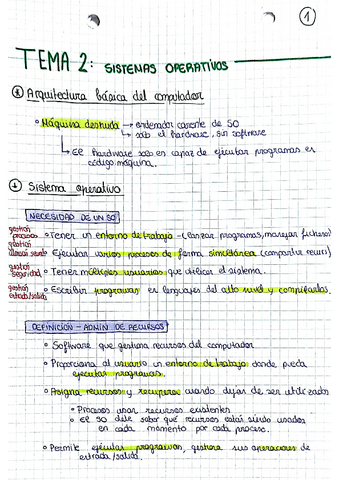 1
TEMA 2: SISTEMAS OPERATIVOS
Arquitectura básica del computador
Máquina desnuda → ordenador carente de SO
→ solo el hardware, sin software
→ el hardware solo es capaz de ejecutar programas en
código máquina.
Sistema operativo
NECESIDAD DE UN SO
gestión procesos
Tener un entorno de trabajo (lanzar programas, manejar ficheros)
gestión
Ejecutar varios procesos de forma simultánea (compartir recurs)
gestión seguridad
Tener múltiples usuarios que utilicen el sistema.
gestión entrada/salida
Escribir programas en lenguajes del alto nivel y compilarlos.
DEFINICIÓN - ADMIN DE RECURSOS
Software que gestiona recursos del computador
Proporciona al usuario un entorno de trabajo donde pueda
ejecutar programas.
Asigna recursos y recupera cuando dejan de ser utilizados
Procesos usan recursos existentes
El SO debe saber qué recursos están siendo usados
en cada momento por cada proceso.
Permite ejecutar programas, gestiona sus operaciones de
entrada/salida.